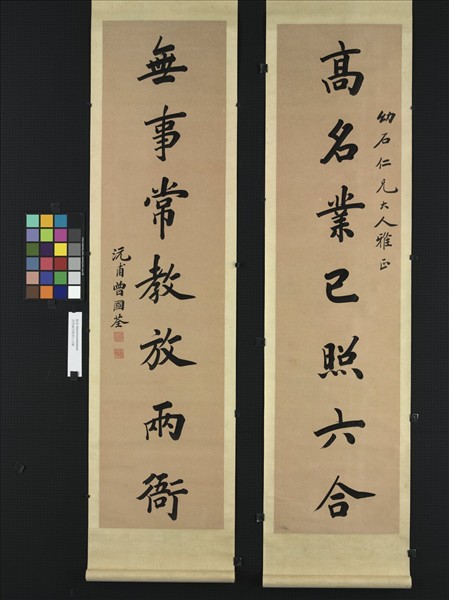 高名業已照六合
幼石仁兄大人雅正
無事常教放兩衙
沅甫曾國荃